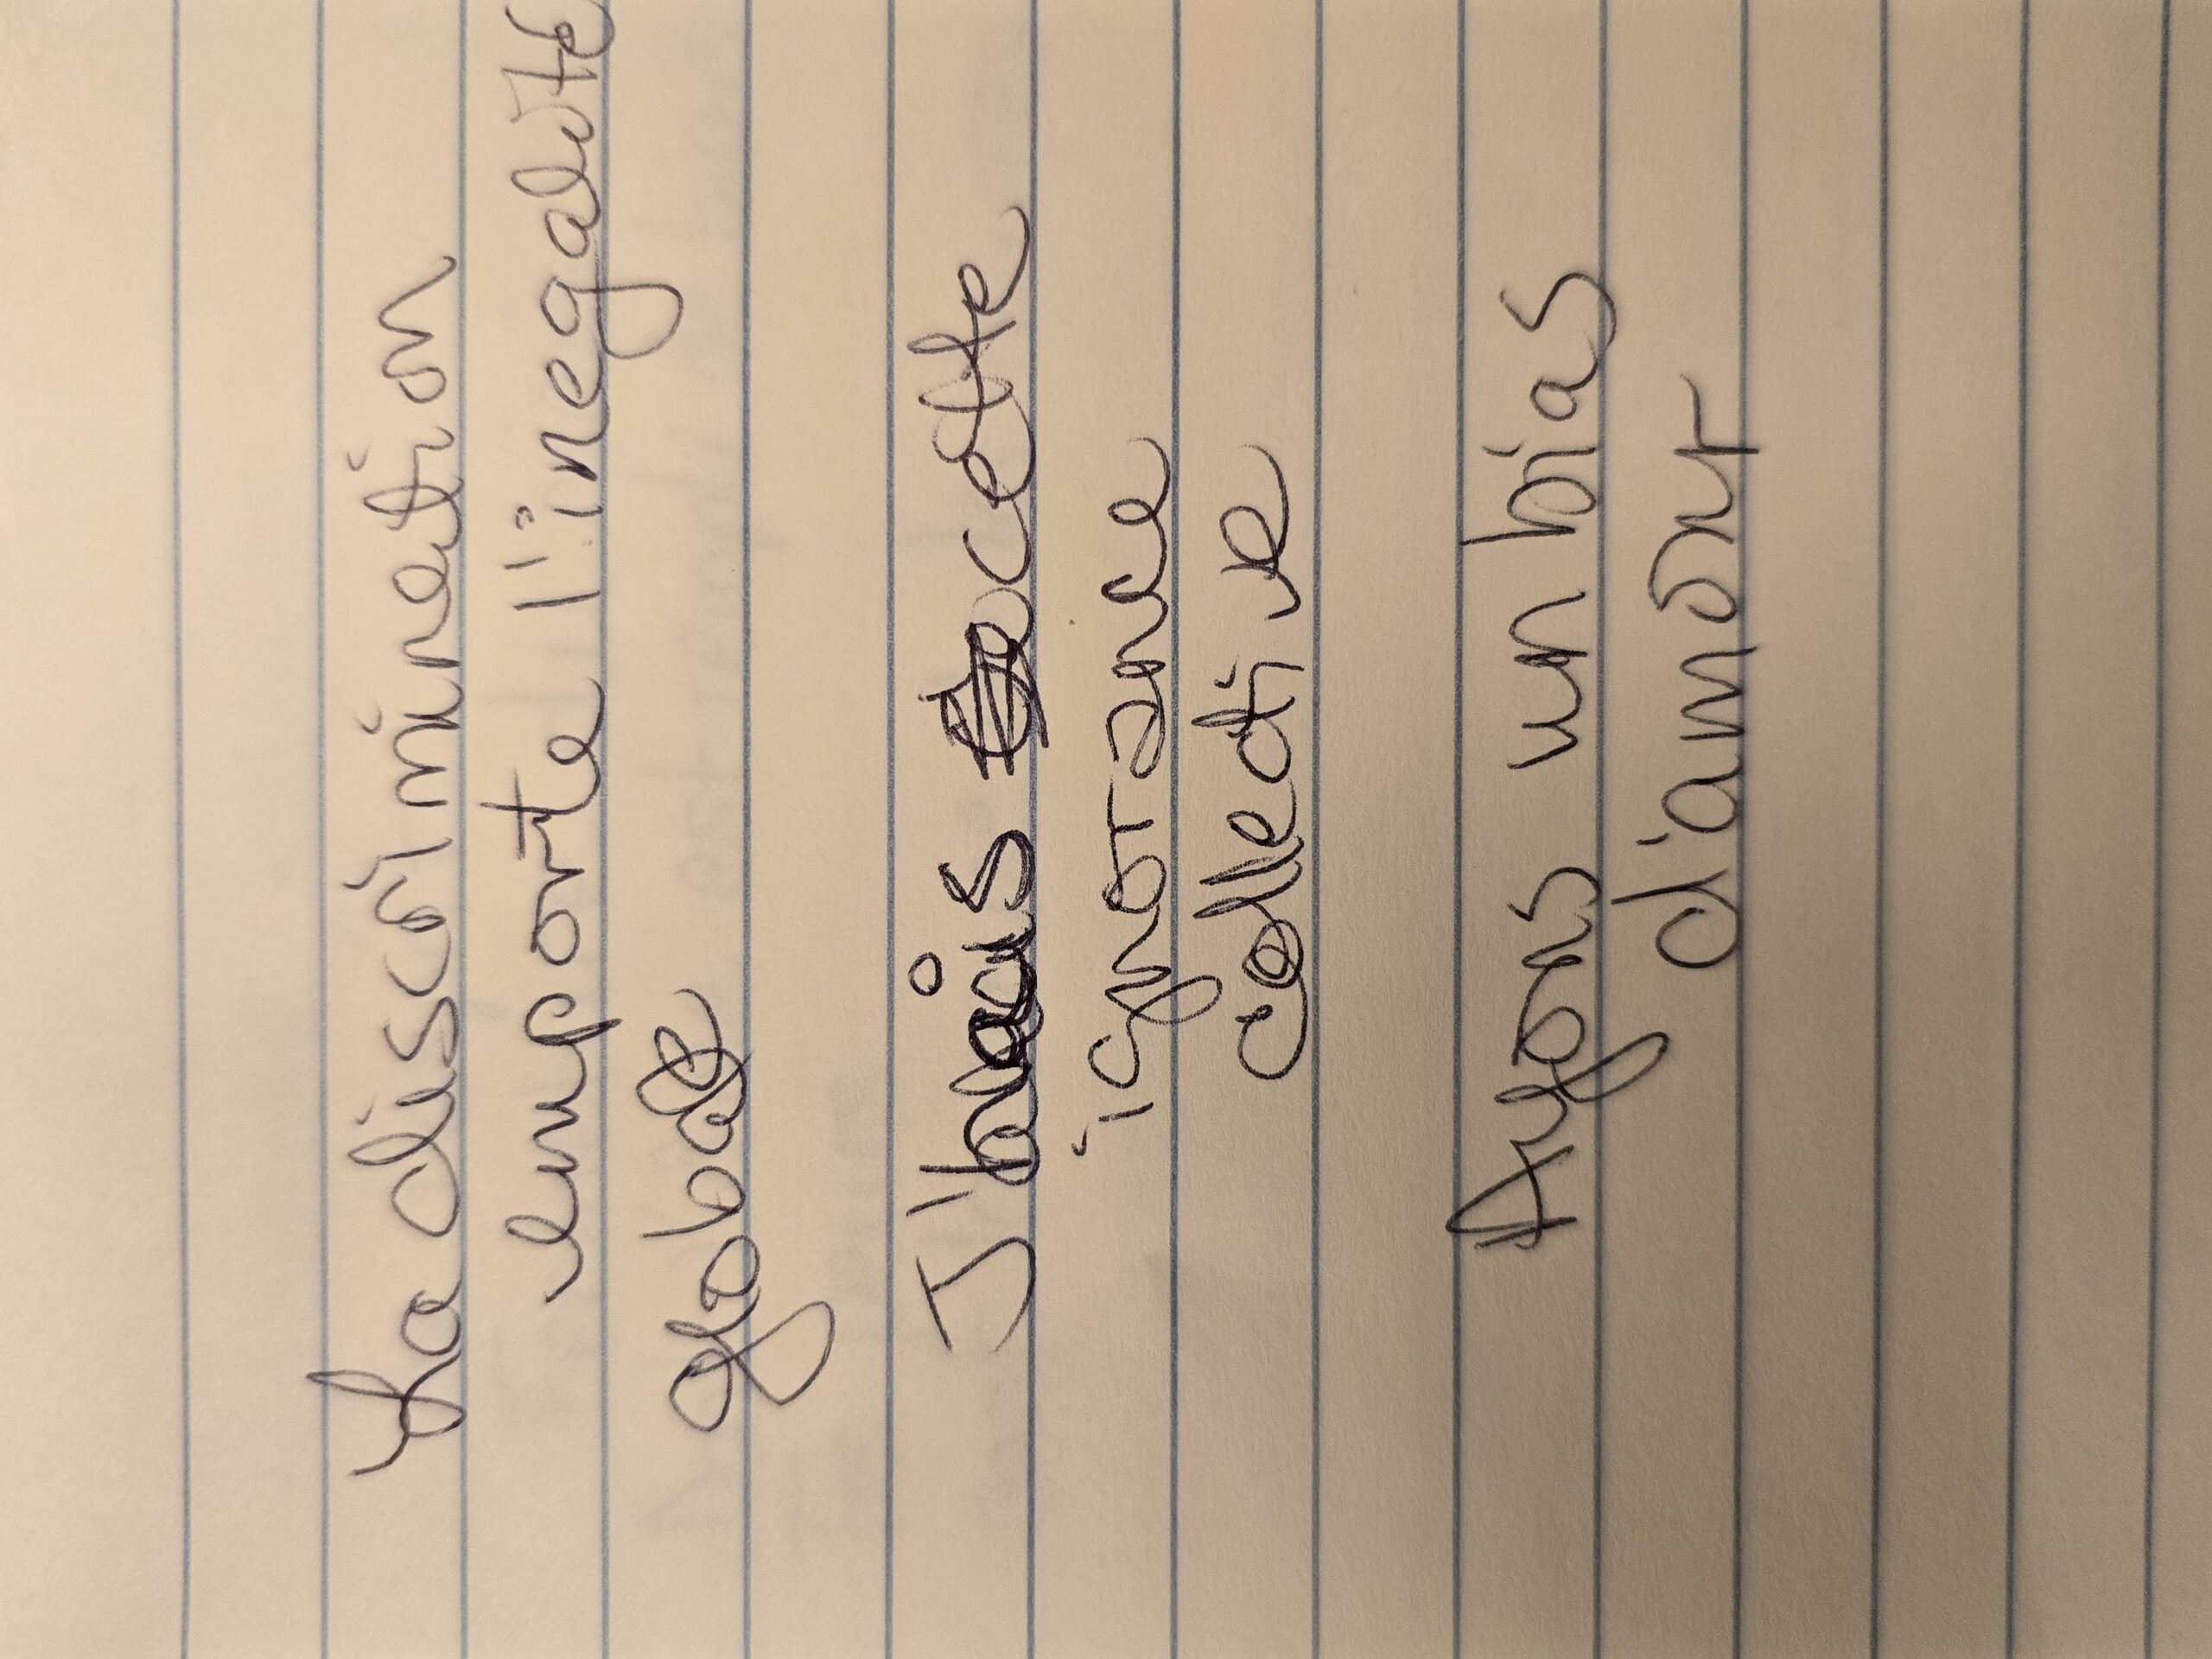 La discrimination
emporte l'inegalité
globale
J'hais cette
ignorance
collective
Ayons un bias
d'amour